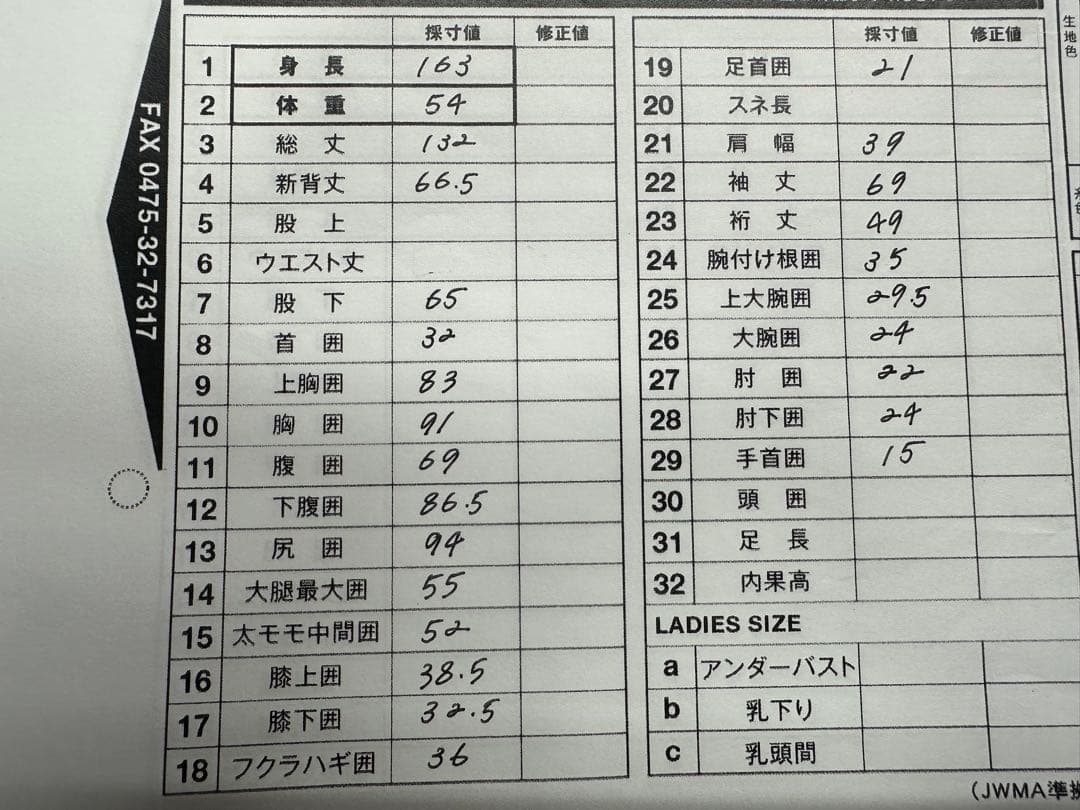 採寸値 修正値
1 身長 163
2 体重 54
3 総丈 132
4 新背丈 66.5
5 股上
6 ウエスト丈
7 股下 65
8 首囲 32
9 上胸囲 83
10 胸囲 91
11 腹囲 69
12 下腹囲 86.5
13 尻囲 94
14 大腿最大囲 55
15 太モモ中間囲 52
16 膝上囲 38.5
17 膝下囲 32.5
18 フクラハギ囲 36
採寸値 修正値
19 足首囲 21
20 スネ長
21 肩幅 39
22 袖丈 69
23 裄丈 49
24 腕付け根囲 35
25 上大腕囲 29.5
26 大腕囲 24
27 肘囲 22
28 肘下囲 24
29 手首囲 15
30 頭囲
31 足長
32 内果高
LADIES SIZE
a アンダーバスト
b 乳下り
c 乳頭間
(JWMA準拠
FAX 0475-32-7317
生地色